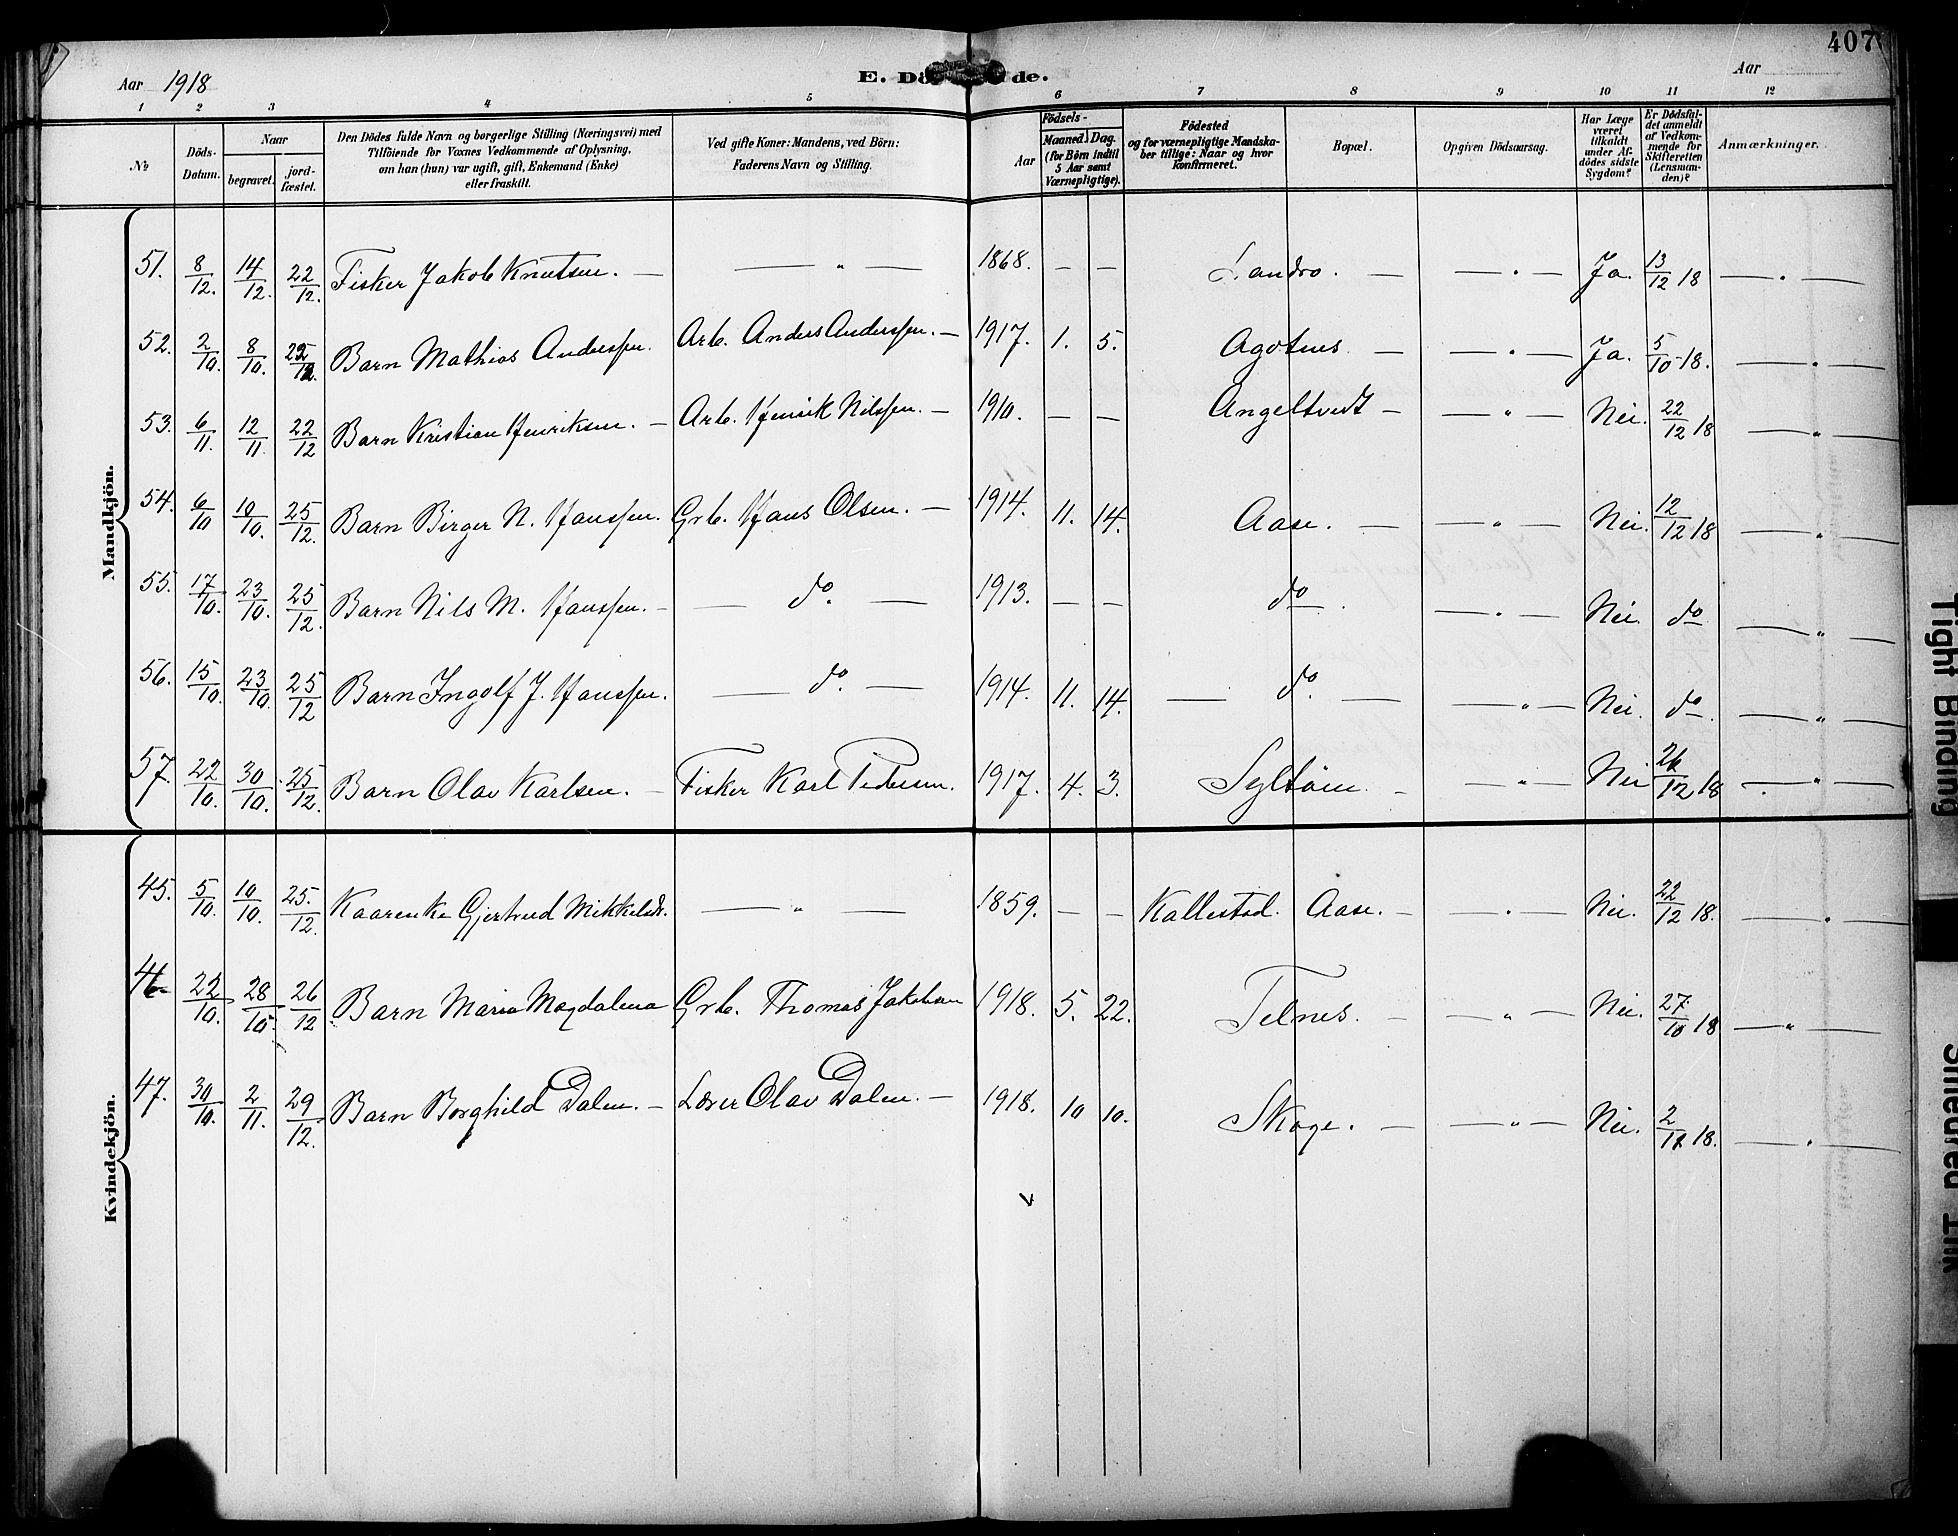 407
Aar 1918 E. Dö de. Aar
1 2 3 4 5 6 7 8 9 10 11 12
№ Döds-Datum. Naar begravet. jord-fæstet. Den Dödes fulde Navn og borgerlige Stilling (Næringsvei) med Tilföiende for Voxnes Vedkommende af Oplysning, om han (hun) var ugift, gift, Enkemand (Enke) eller fraskilt. Ved gifte Koner: Mandens, ved Börn: Faderens Navn og Stilling. Aar Födsels- Maaned. Dag. (for Börn indtil 5 Aar samt Værnepligtige). Födested og for værnepligtige Mandska-ber tillige: Naar og hvor konfirmeret. Bopæl. Opgiven Dödsaarsag. Har Læge været tilkaldt under Af-dödes sidste Sygdom? Er Dödsfal-det anmeldt af Vedkom-mende for Skifteretten (Lensman-den)? Anmærkninger.
Mandkjön.
51. 8/12. 14/12. 22/12. Fisker Jakob Knutsen. — — " — 1868. — — Landro. — — " — Ja. 13/12 18 — " —
52. 2/10. 8/10. 22/12. Barn Mathias Anderssen. Arb. Anders Anderssen. — 1917. 1. 5. Agotnes — — " — Ja. 5/10-18. — " —
53. 6/11. 12/11. 22/12 Barn Kristian Henriksen. — Arb. Henrik Nilssen. — 1910. — — Angeltvedt — — " — Nei. 22/12 18 — " —
54. 6/10 10/10. 25/12. Barn Birger N. Hanssen. Grb. Hans Olsen. — 1914. 11. 14. Aase. — — " — Nei. 12/12 18 — " —
55. 17/10. 23/10. 25/12. Barn Nils M. Hanssen. — — do. — 1913. — — do. — " — Nei. do — " —
56. 15/10. 23/10. 25/12 Barn Ingolf J. Hanssen. — do. — 1914. 11. 14. — do. — — " — Nei. do. — " —
57. 22/10. 30/10. 25/12. Barn Olav Karlsen. — Fisker Karl Pedersen. 1917. 4. 3. Syltöin. — — " — Nei 12 18 — " —
Kvindekjön.
45. 5/10. 10/10. 25./12. Kaarenke Gjertrud Mikkelsdr. — " — 1859. — — Kallestad. Aase. — — " — Nei. 22/12 18. — " —
46. 22/10. 28/10. 26/12 Barn Maria Magdalena Grb. Thomas Jakobsen 1918. 5. 22. Telnes. — — " — Nei. 27/10 18 — " —
47. 30/10. 2/11. 29/12. Barn Borghild Dalen. — Lærer Olav Dalen. — 1918. 10 10. Skoge. — — " — Nei. 2/11 18. — " —
Tight Binding
Smeared Ink